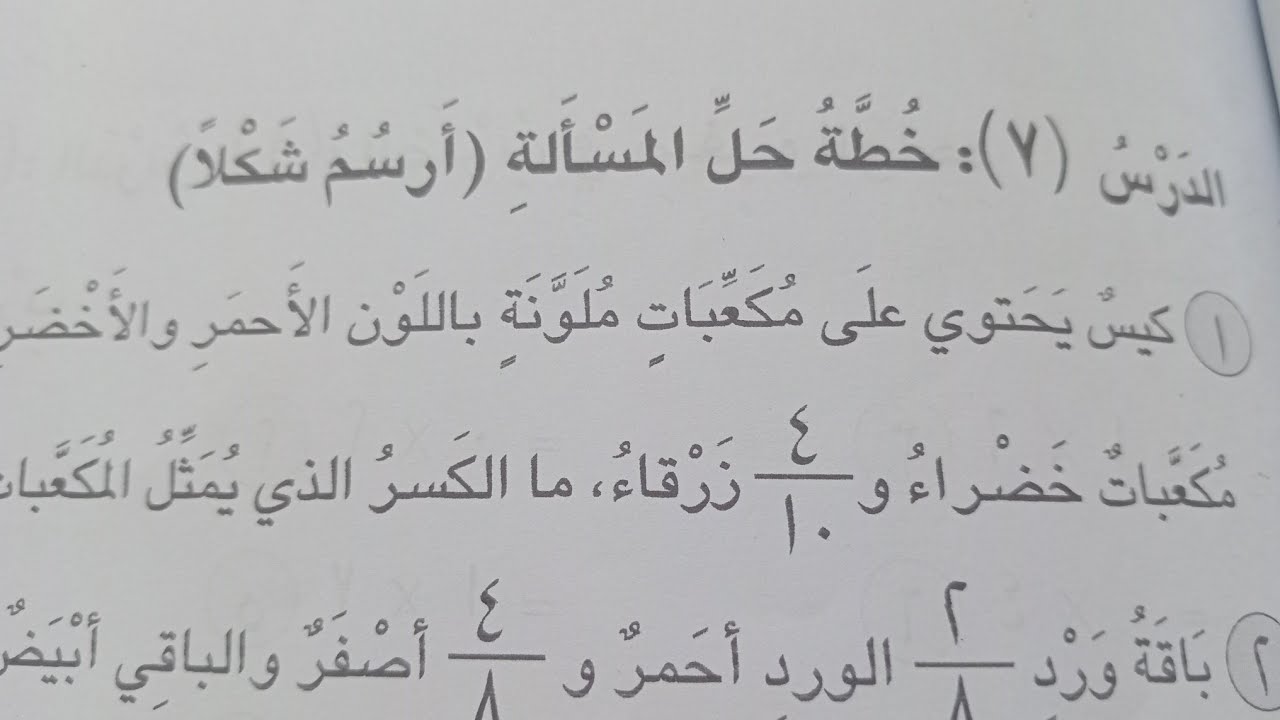 الدَرْسُ (٧): خُطَّةُ حَلِّ المَسْأَلةِ (أَرسُمُ شَكْلاً)
١ كيسٌ يَحَتوي علَى مُكَعِّبَاتٍ مُلَوَّنَةٍ باللَوْن الأَحمَرِ والأَخْضَرِ
مُكَعَّباتٌ خَضْراءُ و ٤/١٠ زَرْقاءُ، ما الكَسرُ الذي يُمَثِّلُ المُكَعَّبات
٢ بَاقَةُ وَرْدِ ٢/٨ الوردِ أحَمرٌ و ٤/٨ أصْفَرٌ والباقِي أبْيَضٌ